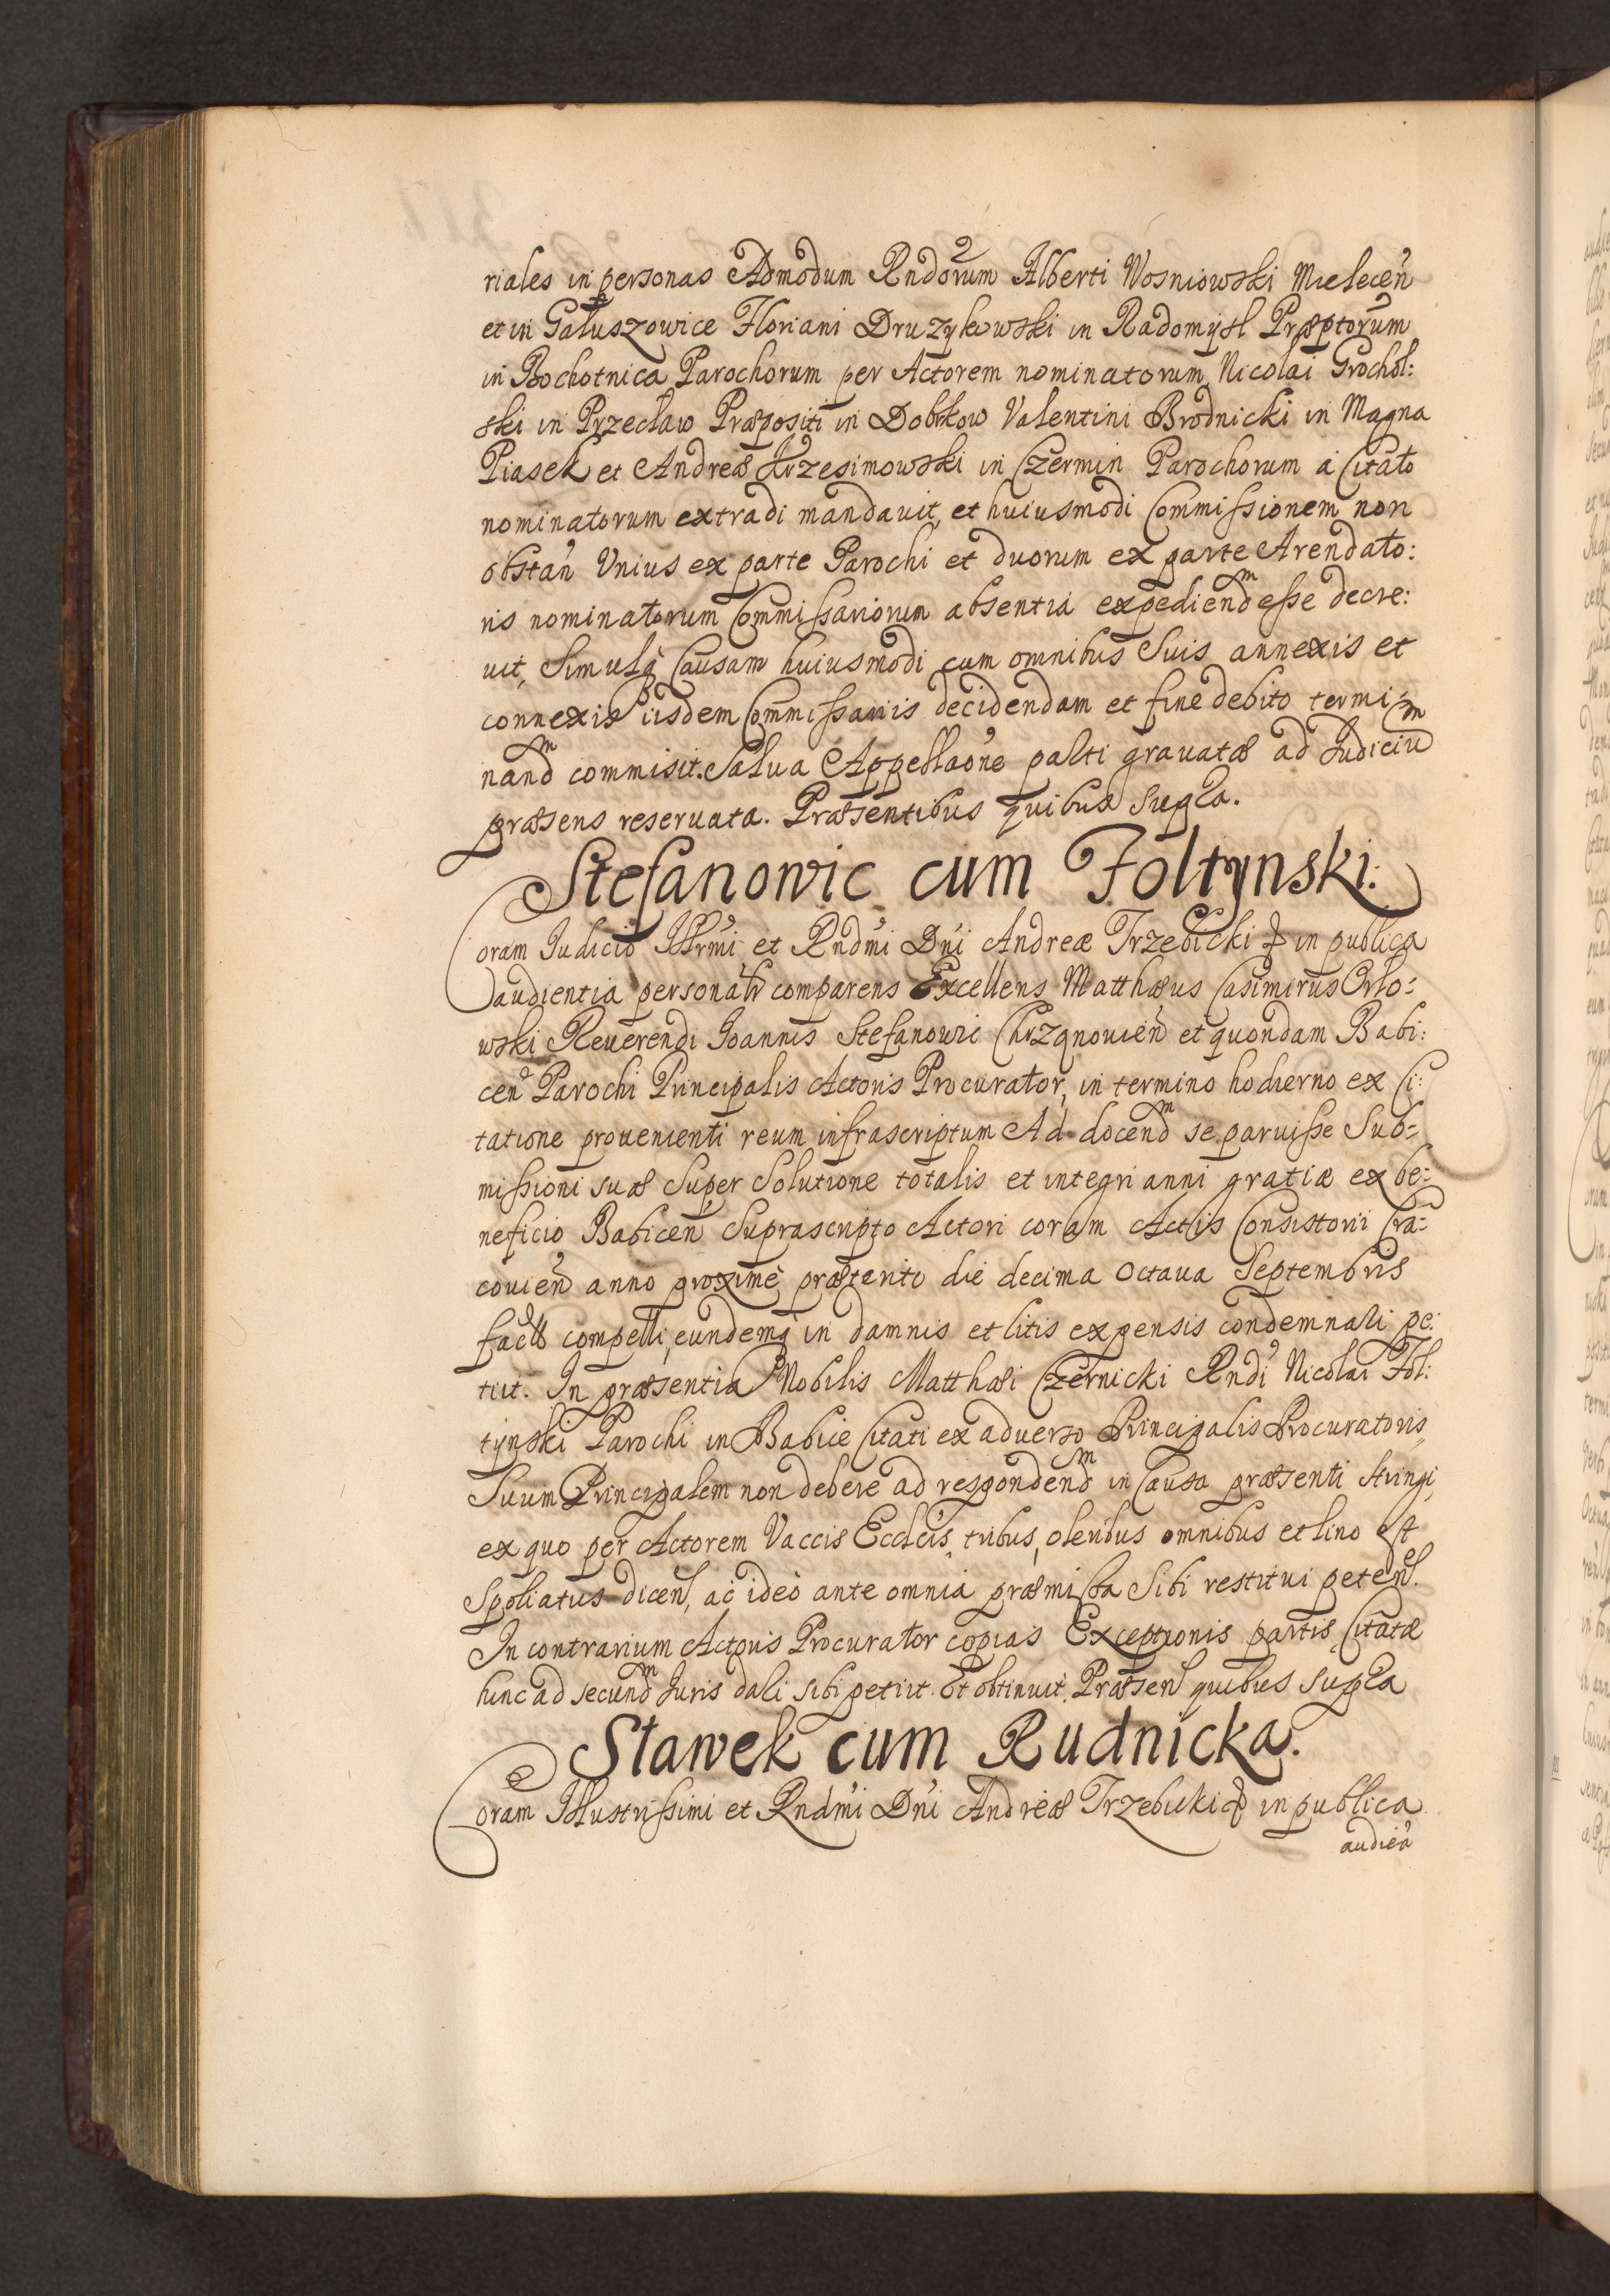 riales in personas Admodum Rndorum Alberti Wosniowski Mielecen
et in Gałuszowice Floriani Druzykowski in Radomysl Præptorum
in Bochotnica Parochorum per Actorem nominatorum, Nicolai Grochol:
ski in Przecław Præpositi in Dobrkow Valentini Brodnicki in Magna
Piasek et Andreæ Krzesimowski in Czermin Parochorum a Citato
nominatorum extradi mandauit, et huiusmodi Commissionem non
obstan Vnius ex parte Parochi et duorum ex parte Arendato:
ris nominatorum Commissariorum absentia expediendm esse decre:
uit, Simulq Causam huiusmodi cum omnibus Suis annexis et
connexis iisdem Commissariis decidendam et fine debito termi:
nandm commisit. Salua Appellaone parti grauatæ ad Iudicium
præsens reseruata. Præsentibus quibus supra.
Stefanowic cum Foltynski.
Coram Iudicio Illrmi et Rndmi Dni Andreæ Trzebicki & in publica
audientia personalr comparens Excellens Matthæus Casimirus Orło:
wski Reuerendi Ioannis Stefanowic Chrzanouien et quondam Babi:
cen Parochi Principalis Actoris Procurator, in termino hodierno ex Ci:
tatione prouenienti reum infrascriptum Ad docendm se paruisse Sub:
missioni suæ Super Solutione totalis et integri anni gratiæ ex be:
neficio Babicen Suprascripto Actori coram Actis Consistorii Cra:
couien anno proxime præterito die decima octaua Septembris
factæ compelli, eundemq in damnis et litis expensis condemnari pe:
tiit. In præsentia Nobilis Matthæi Czernicki Rndi Nicolai Fol:
tynski Parochi in Babice Citati ex aduerso Principalis Procuratoris,
Suum Principalem non debere ad respondendm in Causa præsenti stringi,
ex quo per Actorem Vaccis Ecclcis tribus, oleribus omnibus et lino est
Spoliatus dicen, ac ideo ante omnia præmissa Sibi restitui peten.
In contrarium Actoris Procurator copias Exceptionis partis Citatæ
hinc ad secundm Iuris dari sibi petiit. Et obtinuit. Præsen quibus supra
Stawek cum Rudnicka.
Coram Illustrissimi et Rndmi Dni Andreæ Trzebicki & in publica
audien